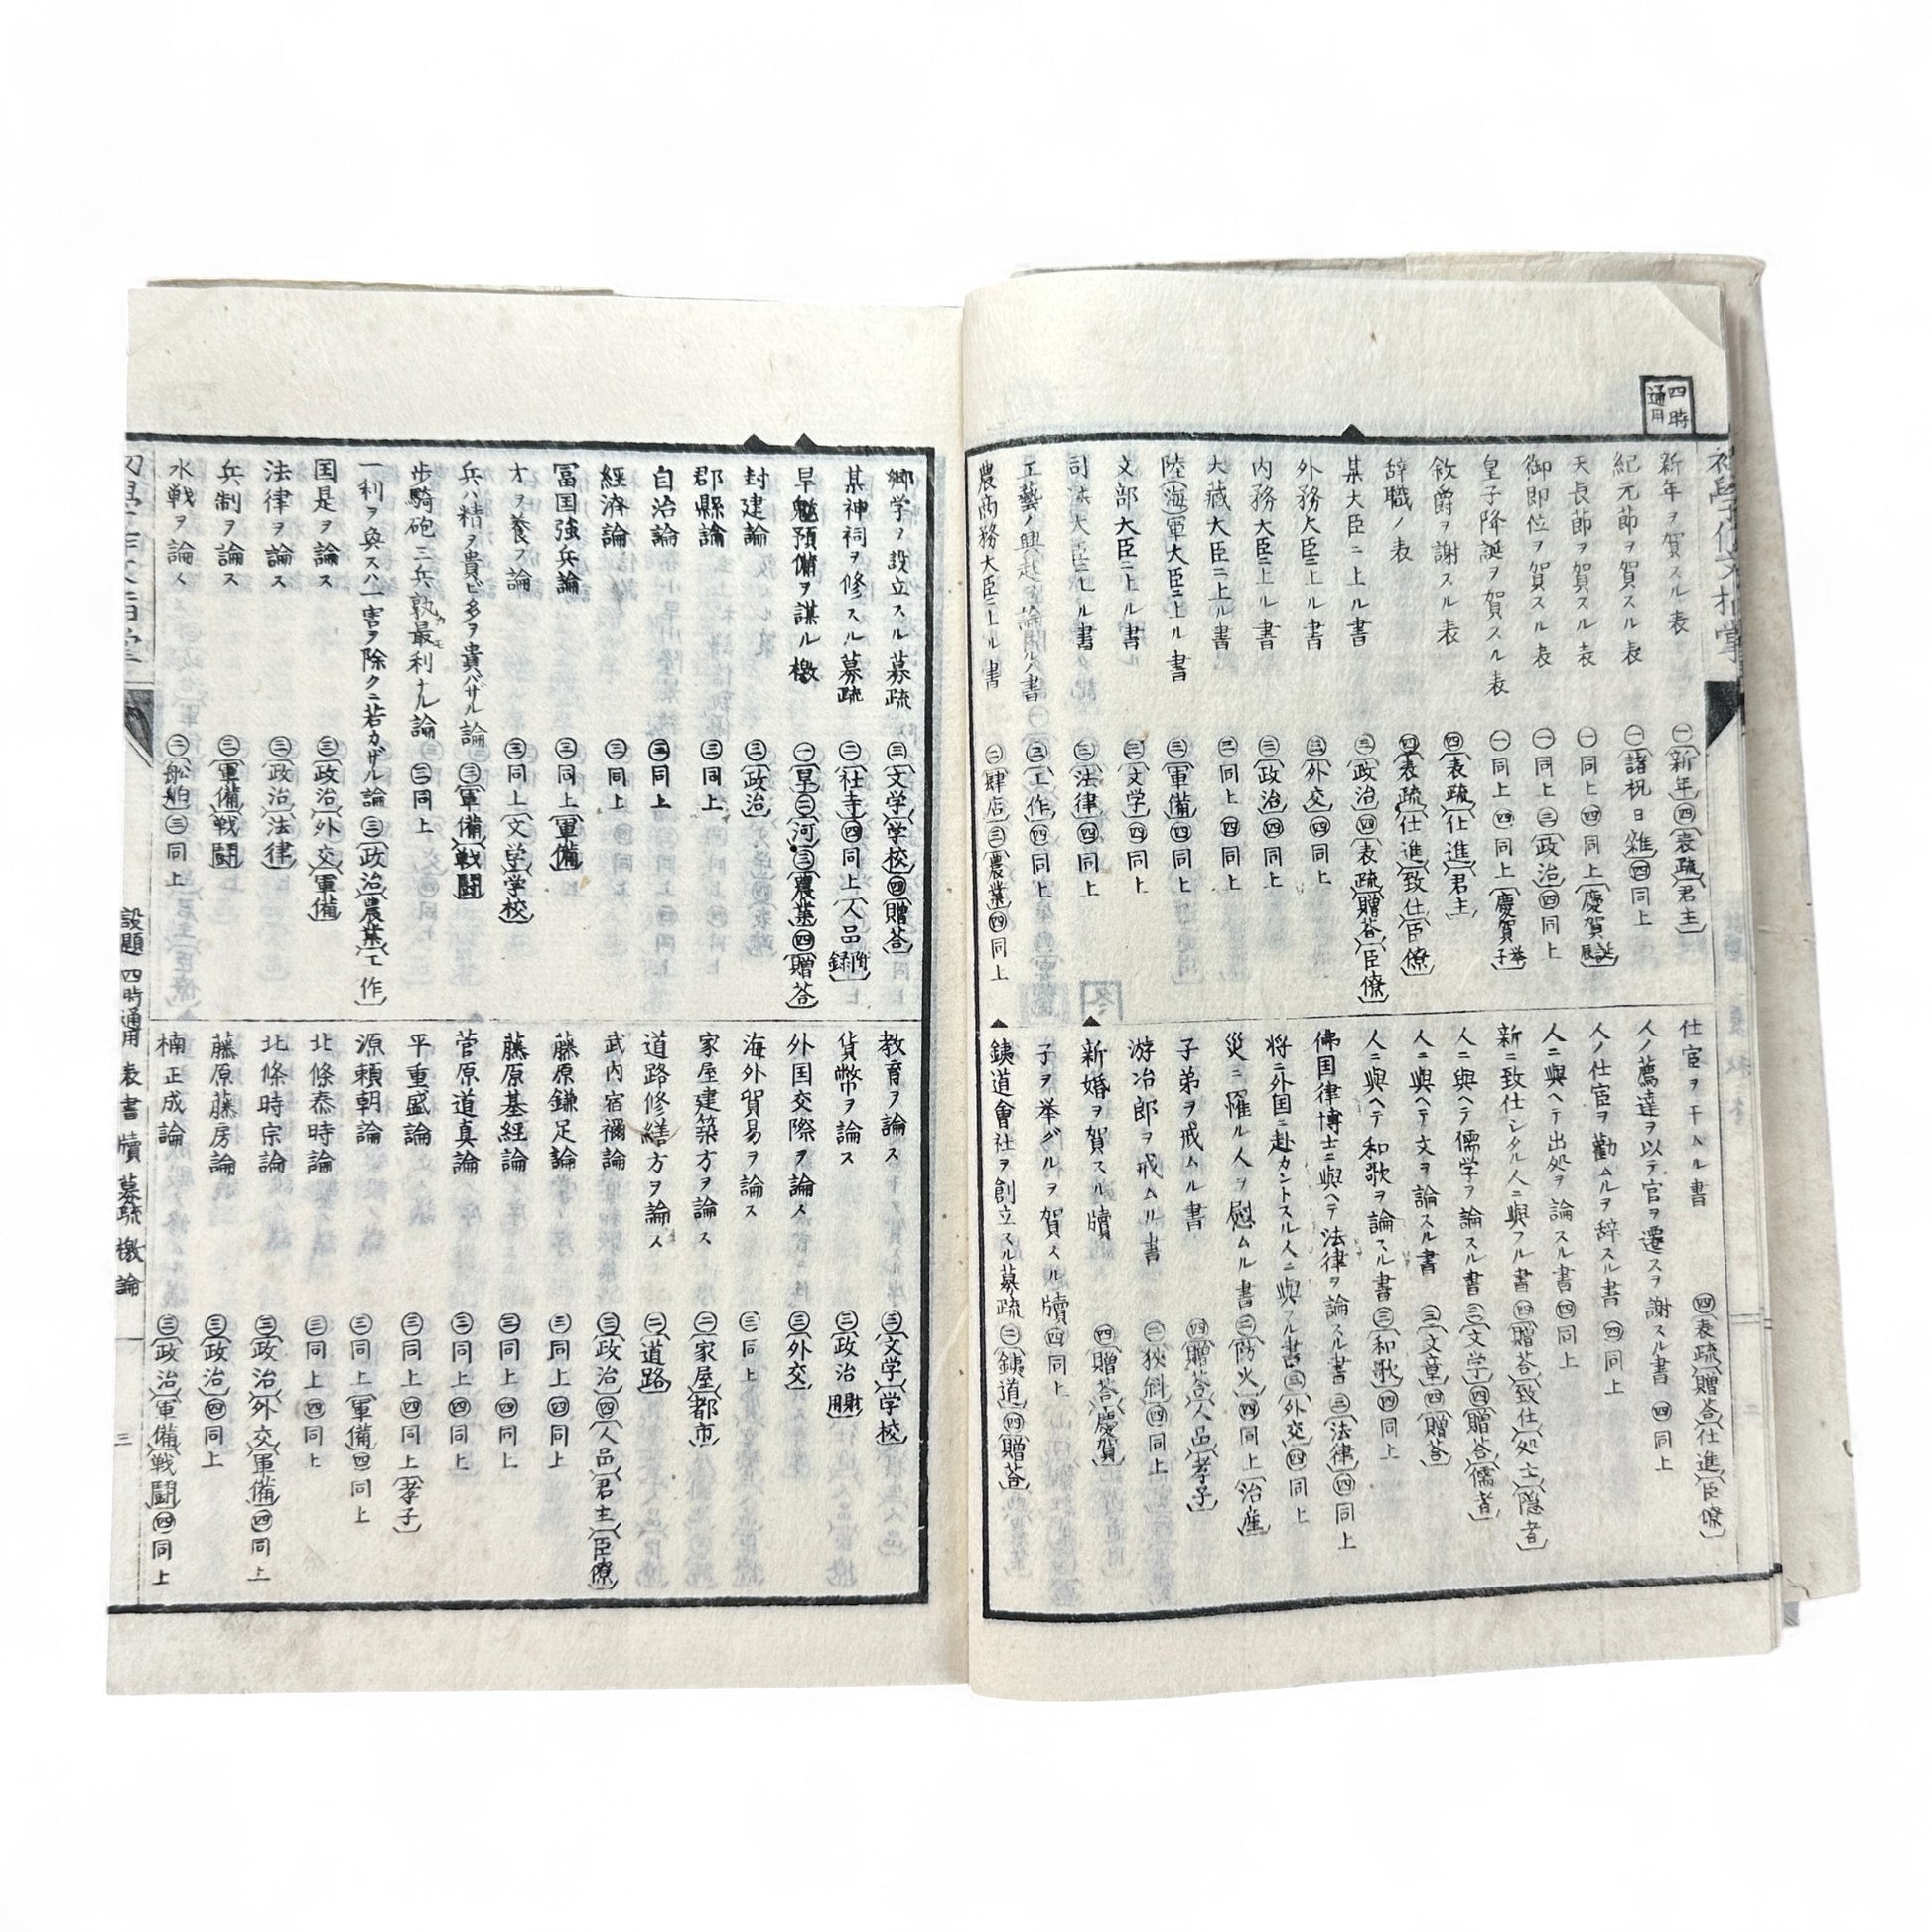 四時通用
新年ヲ賀スル表 ㊀〔新年〕㊃〔表疏〕〔君主〕
紀元節ヲ賀スル表 ㊀〔諸祝日雑〕㊃同上
天長節ヲ賀スル表 ㊀同上㊃同上〔慶賀誕辰〕
御即位ヲ賀スル表 ㊀同上㊂政治㊃同上
皇子降誕ヲ賀スル表 ㊀同上㊃同上〔慶賀挙子〕
敘爵ヲ謝スル表 ㊃〔表疏〕〔仕進〕〔君主〕
辞職ノ表 ㊃〔表疏〕〔仕進〕〔致仕〕〔臣僚〕
某大臣ニ上ル書 ㊂〔政治〕㊃〔表疏〕〔贈荅〕〔臣僚〕
外務大臣ニ上ル書 ㊂〔外交〕㊃同上
内務大臣ニ上ル書 ㊂〔政治〕㊃同上
大藏大臣ニ上ル書 ㊂同上㊃同上
陸〔海〕軍大臣ニ上ル書 ㊂〔軍備〕㊃同上
文部大臣ニ上ル書 ㊂〔文学〕㊃同上
司法大臣ニ上ル書 ㊂〔法律〕㊃同上
工藝ノ興起ヲ論スルノ書 ㊂〔工作〕㊃同上
農商務大臣ニ上ル書 ㊁〔肆店〕㊂〔農業〕㊃同上
仕官ヲ干ムル書 ㊃〔表疏〕〔贈荅〕〔仕進〕〔臣僚〕
人ノ薦達ヲ以テ官ヲ遷スヲ謝スル書 ㊃同上
人ノ仕官ヲ勸ムルヲ辞スル書 ㊃同上
人ニ與ヘテ出処ヲ論スル書 ㊃同上
新ニ致仕シタル人ニ與フル書 ㊃〔贈荅〕〔致仕〕〔処士〕〔隠者〕
人ニ與ヘテ儒学ヲ論スル書 ㊂〔文学〕㊃〔贈荅〕〔儒者〕
人ニ與ヘテ文ヲ論スル書 ㊂〔文章〕㊃〔贈荅〕
人ニ與ヘテ和歌ヲ論スル書 ㊂〔和歌〕㊃同上
佛国律博士ニ與ヘテ法律ヲ論スル書 ㊂〔法律〕㊃同上
将ニ外国ニ赴カントスル人ニ與フル書 ㊂〔外交〕㊃同上
災ニ罹ル人ヲ慰ムル書 ㊁〔防火〕㊃同上〔治産〕
子弟ヲ戒ムル書 ㊃〔贈荅〕〔人品〕〔孝子〕
游冶郎ヲ戒ムル書 ㊁〔狭斜〕㊃同上
新婚ヲ賀スル牘 ㊃〔贈荅〕〔慶賀〕
子ヲ挙グルヲ賀スル牘 ㊃同上
銕道會社ヲ創立スル募疏 ㊁〔銕道〕㊃〔贈荅〕
郷学ヲ設立スル募疏 ㊂〔文学〕〔学校〕㊃〔贈荅〕
某神祠ヲ修スル募疏 ㊁〔社寺〕㊃同上〔人品附録〕
旱魃預備ヲ謀ル檄 ㊀〔旱〕㊁〔河〕㊂〔農業〕㊃〔贈荅〕
封建論 ㊂〔政治〕
郡縣論 ㊂同上
自治論 ㊂同上
經済論 ㊂同上
冨国強兵論 ㊂同上〔軍備〕
才ヲ養フ論 ㊂同上〔文学〕〔学校〕
兵ハ精ヲ貴ビ多ヲ貴バザル論 ㊂〔軍備〕〔戦闘〕
歩騎砲三兵孰カ最モ利ナル論 ㊂同上
一利ヲ興スハ一害ヲ除クニ若カザル論 ㊂〔政治〕〔農業〕〔工作〕
国是ヲ論ス ㊂〔政治〕〔外交〕〔軍備〕
法律ヲ論ス ㊂〔政治〕〔法律〕
兵制ヲ論ス ㊂〔軍備〕〔戦闘〕
水戦ヲ論ス ㊁〔舩舶〕㊂同上
教育ヲ論ス ㊂〔文学〕〔学校〕
貨幣ヲ論ス ㊂〔政治財用〕
外国交際ヲ論ス ㊂〔外交〕
海外貿易ヲ論ス ㊂同上
家屋建築方ヲ論ス ㊁〔家屋〕〔都市〕
道路修繕方ヲ論ス ㊁〔道路〕
武内宿禰論 ㊂〔政治〕㊃〔人品〕〔君主〕〔臣僚〕
藤原鎌足論 ㊂同上㊃同上
藤原基經論 ㊂同上㊃同上
菅原道真論 ㊂同上㊃同上
平重盛論 ㊂同上㊃同上〔孝子〕
源頼朝論 ㊂同上〔軍備〕㊃同上
北條泰時論 ㊂同上㊃同上
北條時宗論 ㊂〔政治〕〔外交〕〔軍備〕㊃同上
藤原藤房論 ㊂〔政治〕㊃同上
楠正成論 ㊂〔政治〕〔軍備〕〔戦闘〕㊃同上
設題 四時通用 表 書 牘 募疏 檄 論 三